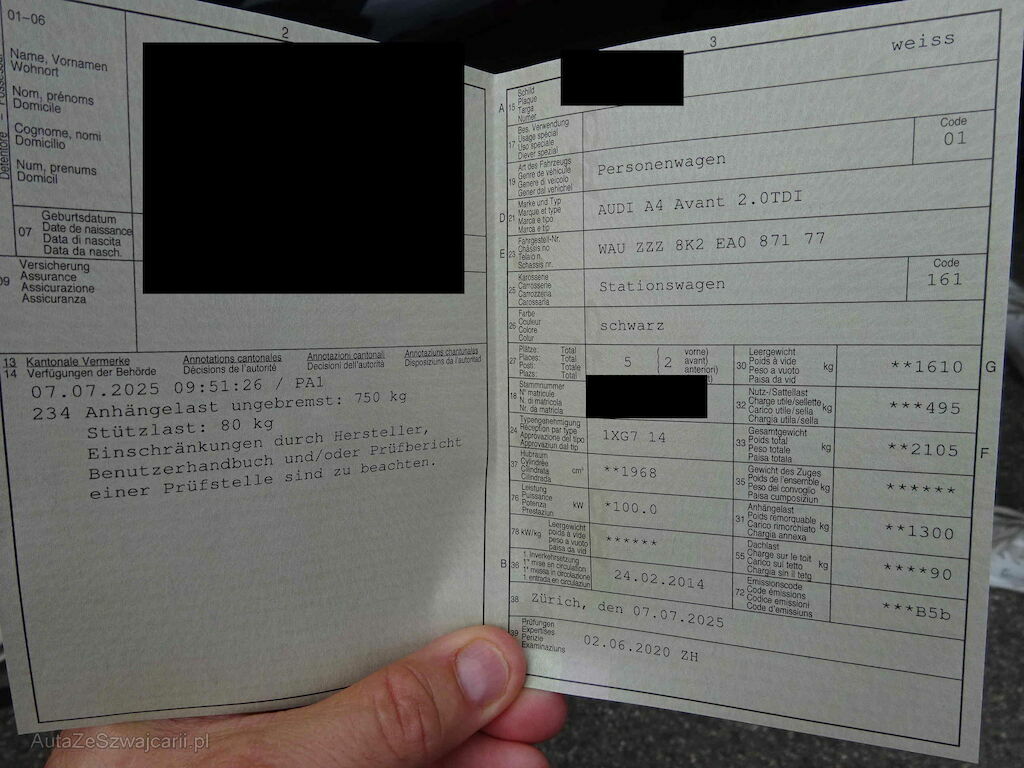 01-06
2
Name, Vornamen
Wohnort
Nom, prénoms
Domicile
Cognome, nomi
Domicilio
Num, prenums
Domicil
07
Geburtsdatum
Date de naissance
Data di nascita
Data da nasch.
09
Versicherung
Assurance
Assicurazione
Assicuranza
13 Kantonale Vermerke
14 Verfügungen der Behörde
Annotations cantonales
Décisions de l'autorité
Annotazioni cantonali
Decisioni dell'autorità
Annotaziuns chantunalas
Disposiziuns da l'autoritad
07.07.2025 09:51:26 / PA1
234 Anhängelast ungebremst: 750 kg
Stützlast: 80 kg
Einschränkungen durch Hersteller,
Benutzerhandbuch und/oder Prüfbericht
einer Prüfstelle sind zu beachten.
3
weiss
A 15
Schild
Plaque
Targa
Numer
17
Bes. Verwendung
Usage spécial
Uso speciale
Diever spezial
Code
01
19
Art des Fahrzeugs
Genre de véhicule
Genere di veicolo
Gener dal vehichel
Personenwagen
D 21
Marke und Typ
Marque et type
Marca e tipo
Marca e tip
AUDI A4 Avant 2.0TDI
E 23
Fahrgestell-Nr.
Châssis no
Telaio n.
Schassis nr.
WAU ZZZ 8K2 EA0 871 77
25
Karosserie
Carrosserie
Carrozzeria
Carossaria
Stationswagen
Code
161
26
Farbe
Couleur
Colore
Colur
schwarz
27
Plätze: Total
Places: Total
Posti: Totale
Plazs: Total
5 (2 vorne)
avant)
anteriori)
30
Leergewicht
Poids à vide
Peso a vuoto
Paisa da vid
kg
**1610
G
18
Stammnummer
N° matricule
N. di matricola
Nr. da matricla
32
Nutz-/Sattellast
Charge utile/sellette
Carico utile/sella
Chargia utila/sella
kg
***495
24
Typengenehmigung
Réception par type
Approvazione del tipo
Approvaziun dal tip
1XG7 14
33
Gesamtgewicht
Poids total
Peso totale
Paisa totala
kg
**2105
F
37
Hubraum
Cylindrée
Cilindrata
Cilindrada
cm³
**1968
35
Gewicht des Zuges
Poids de l'ensemble
Peso del convoglio
Paisa cumposiziun
kg
******
76
Leistung
Puissance
Potenza
Prestaziun
kW
*100.0
31
Anhängelast
Poids remorquable
Carico rimorchiato
Chargia annexa
kg
**1300
78 kW/kg
Leergewicht
poids à vide
peso a vuoto
paisa da vid
******
55
Dachlast
Charge sur le toit
Carico sul tetto
Chargia sin il tetg
kg
****90
B 36
1. Inverkehrsetzung
1re mise en circulation
1a messa in circolazione
1. entrada en circulaziun
24.02.2014
72
Emissionscode
Code émissions
Codice emissioni
Code d'emissiuns
***B5b
38
Zürich, den 07.07.2025
39
Prüfungen
Expertises
Perizie
Examinaziuns
02.06.2020 ZH
AutaZeSzwajcarii.pl